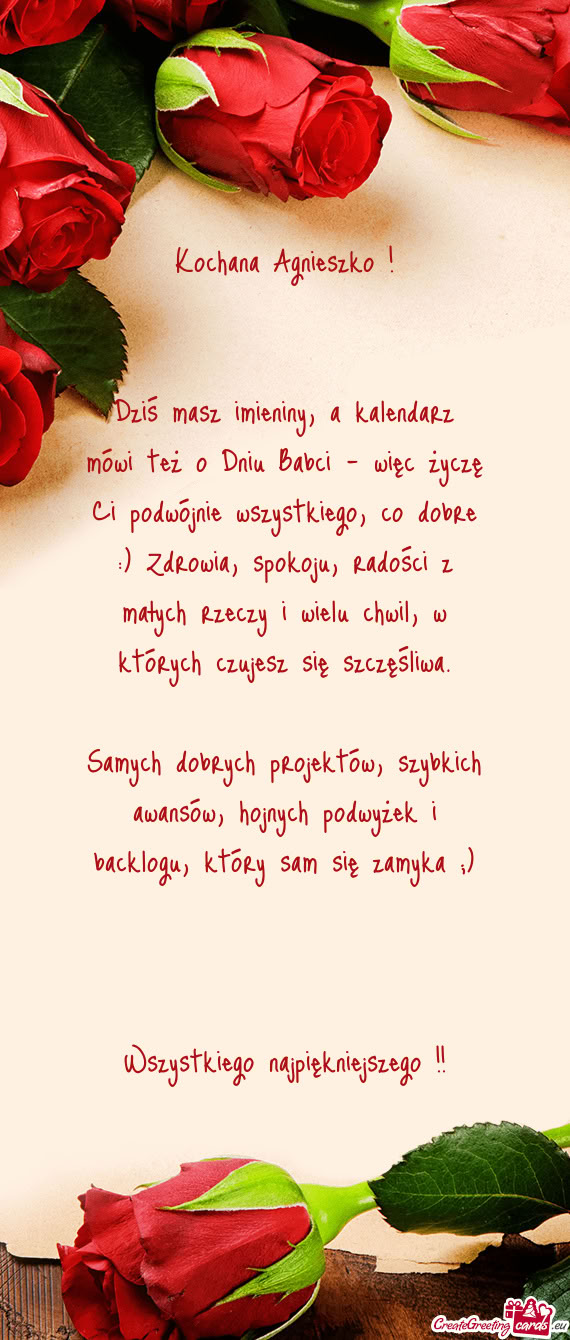 Kochana Agnieszko !
Dziś masz imieniny, a kalendarz
mówi też o Dniu Babci - więc życzę
Ci podwójnie wszystkiego, co dobre
:) Zdrowia, spokoju, radości z
małych rzeczy i wielu chwil, w
których czujesz się szczęśliwa.
Samych dobrych projektów, szybkich
awansów, hojnych podwyżek i
backlogu, który sam się zamyka ;)
Wszystkiego najpiękniejszego !!
CreateGreeting cards .eu